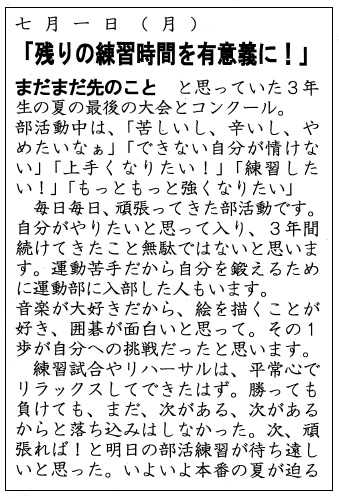 七月一日（月）
「残りの練習時間を有意義に！」
まだまだ先のこと　と思っていた３年
生の夏の最後の大会とコンクール。
部活動中は、「苦しいし、辛いし、や
めたいなぁ」「できない自分が情けな
い」「上手くなりたい！」「練習した
い！」「もっともっと強くなりたい」
　毎日毎日、頑張ってきた部活動です。
自分がやりたいと思って入り、３年間
続けてきたこと無駄ではないと思いま
す。運動苦手だから自分を鍛えるため
に運動部に入部した人もいます。
音楽が大好きだから、絵を描くことが
好き、囲碁が面白いと思って。その１
歩が自分への挑戦だったと思います。
　練習試合やリハーサルは、平常心で
リラックスしてできたはず。勝っても
負けても、まだ、次がある、次がある
からと落ち込みはしなかった。次、頑
張れば！と明日の部活練習が待ち遠し
いと思った。いよいよ本番の夏が迫る